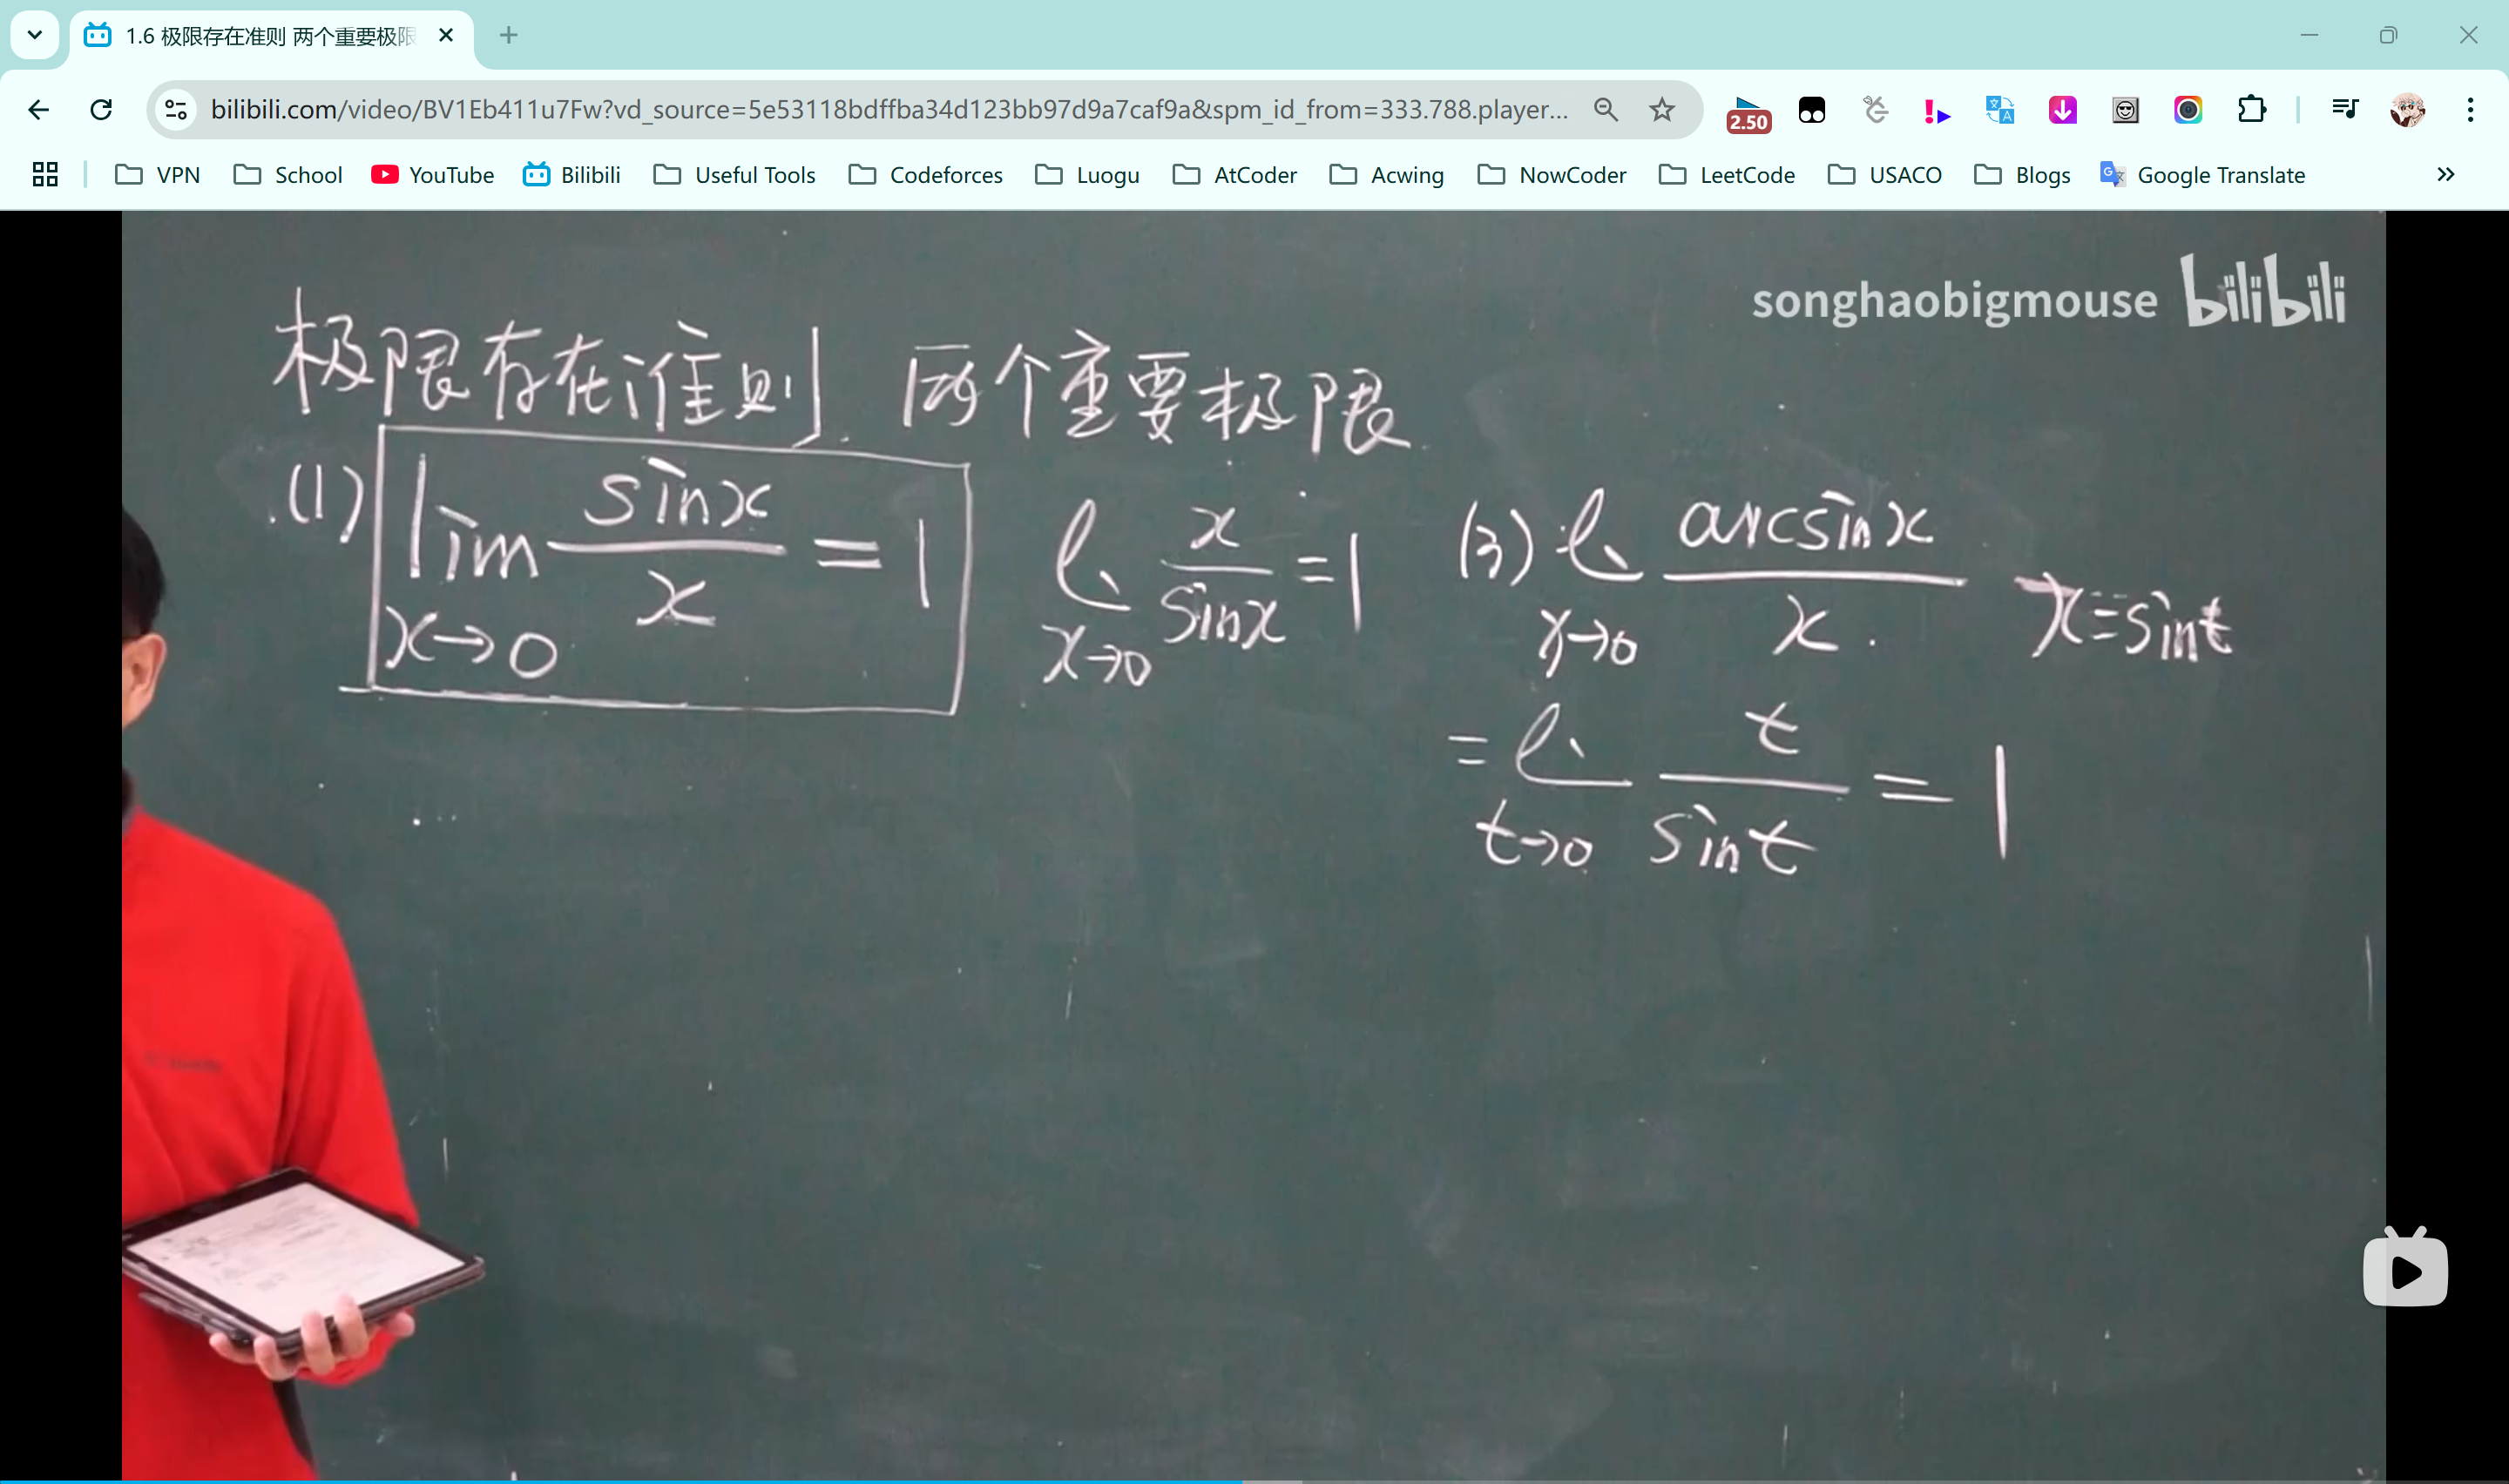 1.6 极限存在准则 两个重要极限
bilibili.com/video/BV1Eb411u7Fw?vd_source=5e53118bdffba34d123bb97d9a7caf9a&spm_id_from=333.788.player...
2.50
VPN School YouTube Bilibili Useful Tools Codeforces Luogu AtCoder Acwing NowCoder LeetCode USACO Blogs Google Translate
songhaobigmouse bilibili
极限存在准则 两个重要极限
(1) lim x→0 sinx/x = 1
l x→0 x/sinx = 1
(3) l x→0 arcsinx/x x=sint
= l t→0 t/sint = 1